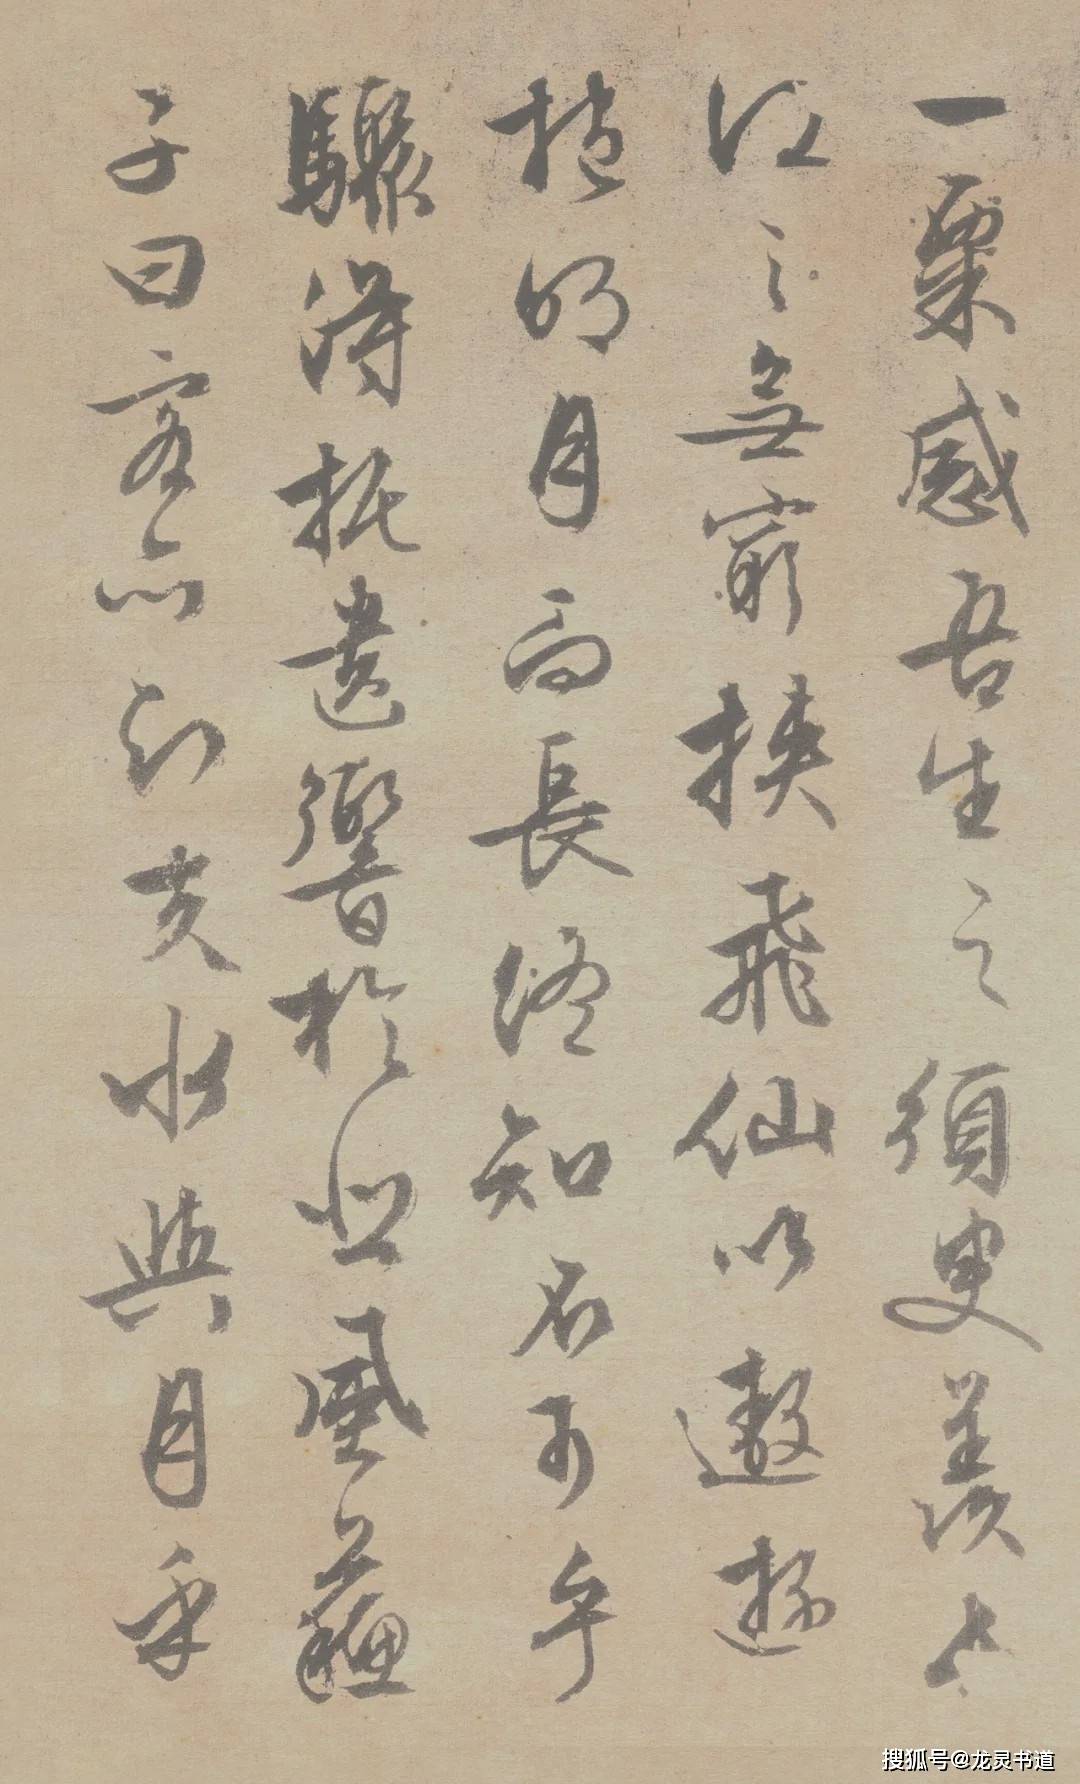 一粟感吾生之須臾羨長
江之無窮挾飛仙以遨遊
抱明月而長終知不可乎
驟得托遺響於悲風蘇
子曰客亦知夫水與月乎
搜狐号@龙灵书道